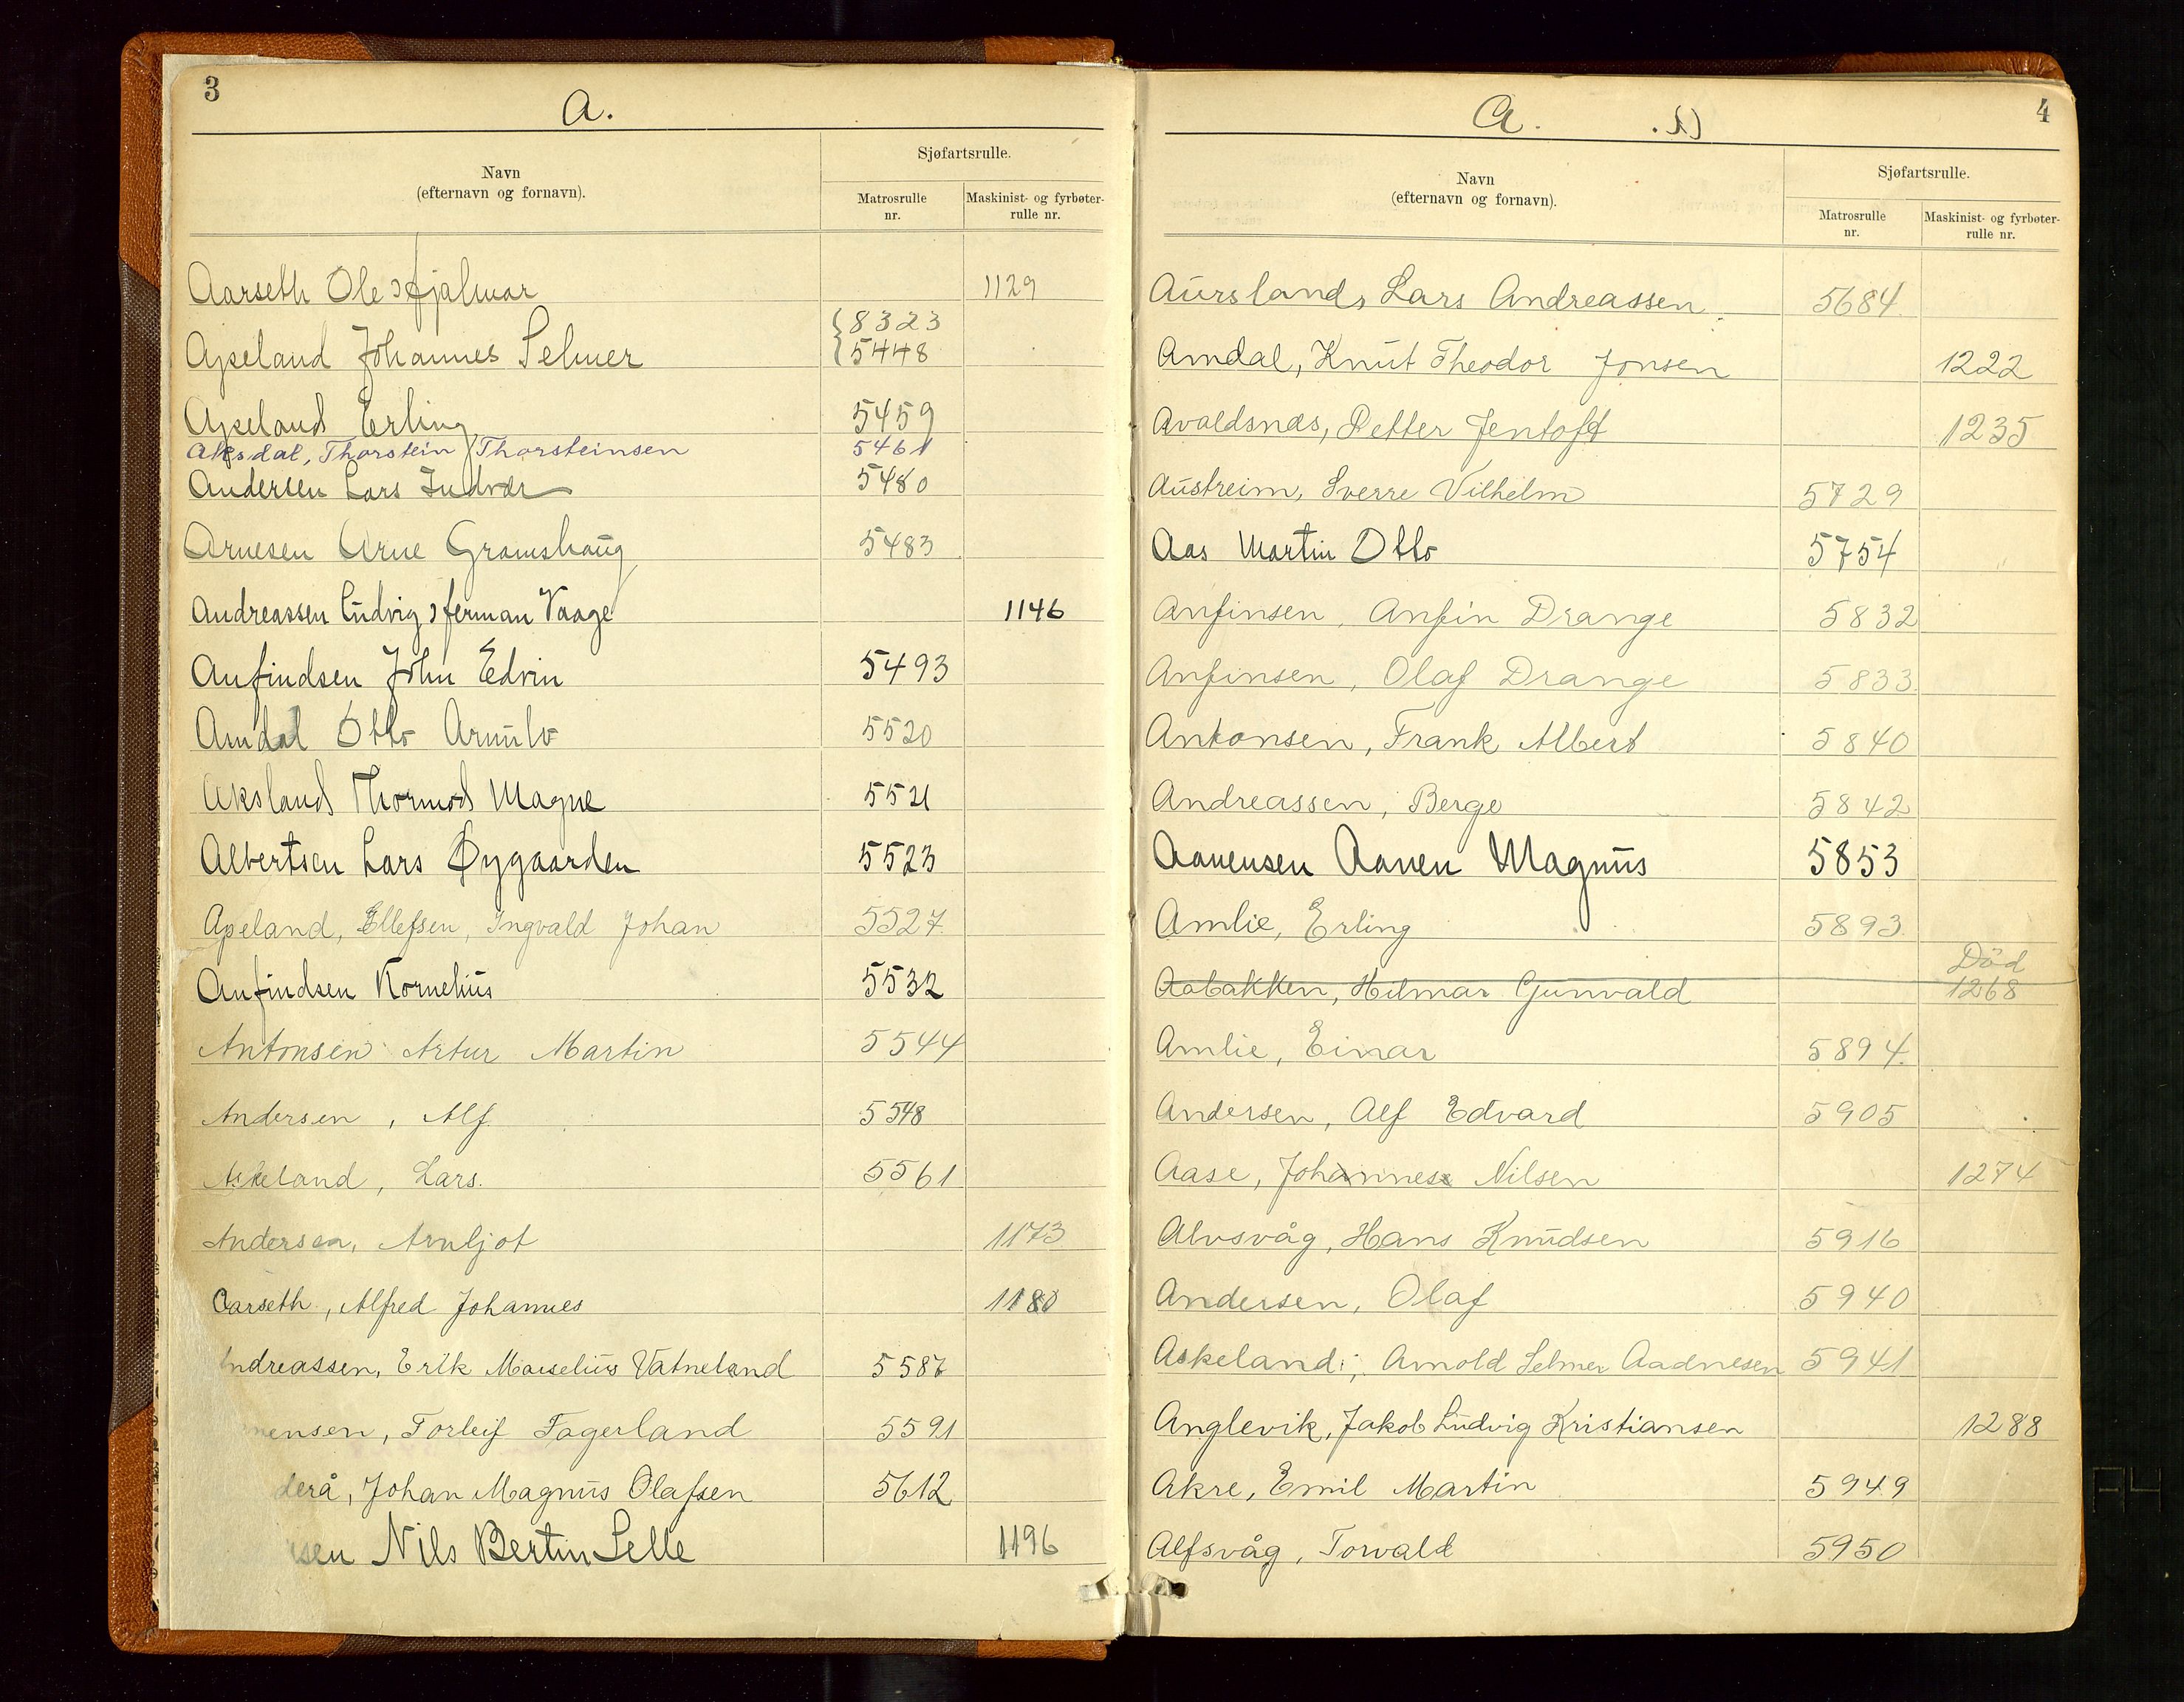 3
A.
Navn
(efternavn og fornavn).
Sjøfartsrulle.
Matrosrulle
nr.
Maskinist- og fyrbøter-
rulle nr.
Aarseth Ole Hjalmar 1129
Apeland Johannes Selmer {8323 {5448
Apeland Erling 5459
Aksdal, Thorstein Thorsteinsen 5461
Andersen Lars Indvær 5480
Arnesen Arne Gramshaug 5483
Andreassen Ludvig Herman Vaage 1146
Anfindsen John Edvin 5493
Amdal Otto Arnulv 5520
Aksland Thormod Magne 5521
Albertsen Lars Øygaarden 5523
Apeland, Ellefsen, Ingvald Johan 5527
Anfindsen Kornelius 5532
Antonsen Artur Martin 5544
Andersen, Alf 5548
Askeland, Lars. 5561
Andersen, Arnljot 1173
Aarseth, Alfred Johannes 1180
ndreassen, Erik Marselius Vatneland 5587
ensen, Torleif Fagerland 5591
derå, Johan Magnus Olafsen 5612
sen Nils Bertin Selle 1196
4
A.
Navn
(efternavn og fornavn).
Sjøfartsrulle.
Matrosrulle
nr.
Maskinist- og fyrbøter-
rulle nr.
Aursland, Lars Andreassen. 5684
Amdal, Knut Theodor Jonsen 1222
Avaldsnæs, Petter Jentoft 1235
Austreim, Sverre Vilhelm 5729
Aas Martin Otto 5754
Anfinsen, Anfin Drange 5832
Anfinsen, Olaf Drange 5833
Antonsen, Frank Albert 5840
Andreassen, Berge 5842
Aanensen Aanen Magnus 5853
Amlie, Erling 5893
Død
Aabakken, Hilmar Gunvald 1268
Amlie, Einar 5894
Andersen, Alf Edvard 5905
Aase, Johannes Nilsen 1274
Alvsvåg, Hans Knudsen 5916
Andersen, Olaf 5940
Askeland, Arnold Selmer Aadnesen 5941
Anglevik, Jakob Ludvig Kristiansen 1288
Akre, Emil Martin 5949
Alfsvåg, Torvald 5950